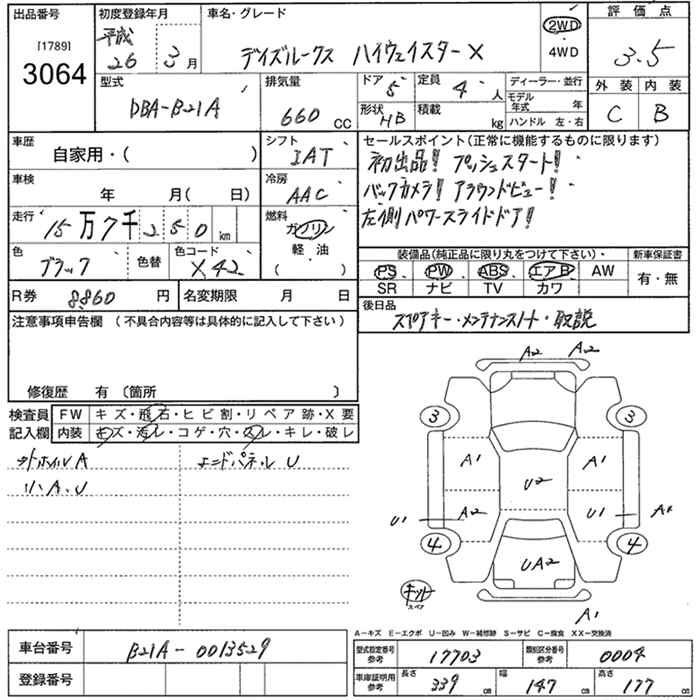 出品番号
[1789]
3064
初度登録年月
平成
26 3月
車名・グレード
デイズルークス ハイウェイスターX
2WD
4WD
評価点
3.5
外装 内装
C B
型式
DBA-B21A
排気量
660 CC
ドア 5
形状 HB
定員 4 人
積載 kg
ディーラー・並行
モデル年式 年
ハンドル 左・右
車歴
自家用・( )
シフト
IAT
車検
年 月( 日)
冷房
AAC
走行
15万7千250km
燃料
ガソリン
軽・油
( )
色
ブラック
色替
色コード
X42
R券 8860 円
名変期限 月 日
セールスポイント(正常に機能するものに限ります)
初出品! プッシュスタート!
バックカメラ! アラウンドビュー!
左側パワースライドドア!
装備品(純正品に限り丸をつけて下さい)・
新車保証書
PS PW ABS エアB AW
SR ナビ TV カワ
有・無
後日品
スペアキー・メンテナンスノート・取説
注意事項申告欄 (不具合内容等は具体的に記入して下さい)
修復歴 有 〔箇所 〕
検査員
記入欄
FW キズ・飛石・ヒビ割・リペア跡・X要
内装 キズ・汚レ・コゲ・穴・スレ・キレ・破レ
外ホイルA
エンドパネルU
リハA、U
A2 A2
3 3
A1 A1
U2
U1 A2 U1 A1
4 4
UA2
キット
スペア
A1
A-キズ E-エクボ U-凹み W-補修跡 S-サビ C-腐食 XX-交換済
車台番号 B21A-0013529
登録番号
型式指定番号 参考 17703
類別区分番号 参考 0004
車庫証明用 参考
長さ 339 cm
幅 147 cm
高さ 177 cm